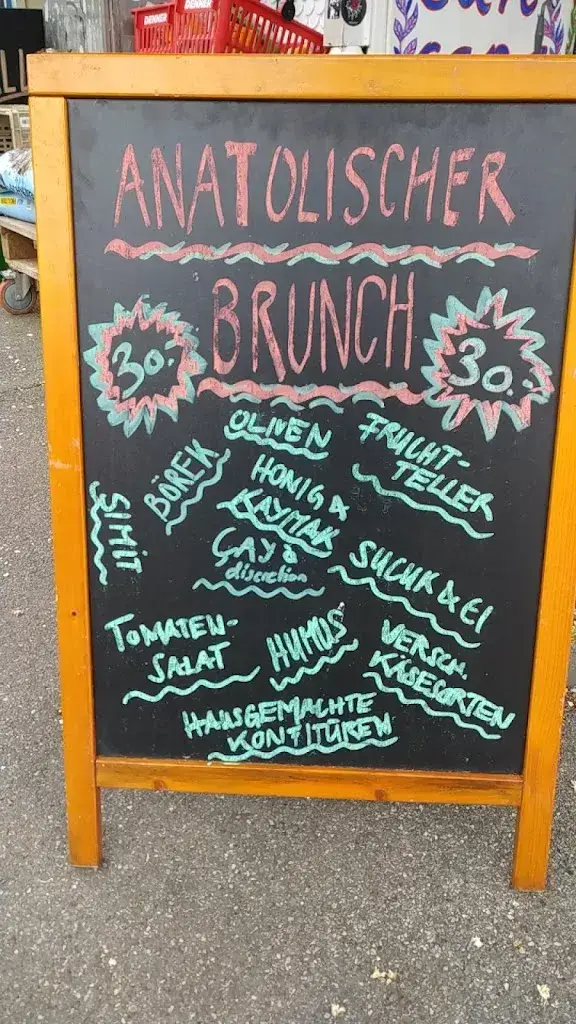 DENNER
DENNER
ANATOLISCHER
BRUNCH
30.-
30.-
OLIVEN
FRUCHT-
TELLER
BÖREK
HONIG &
KAYMAK
SIMIT
ÇAY à
discretion
SUCUK & EI
TOMATEN-
SALAT
HUMUS
VERSCH.
KÄSESORTEN
HAUSGEMACHTE
KONFITÜREN